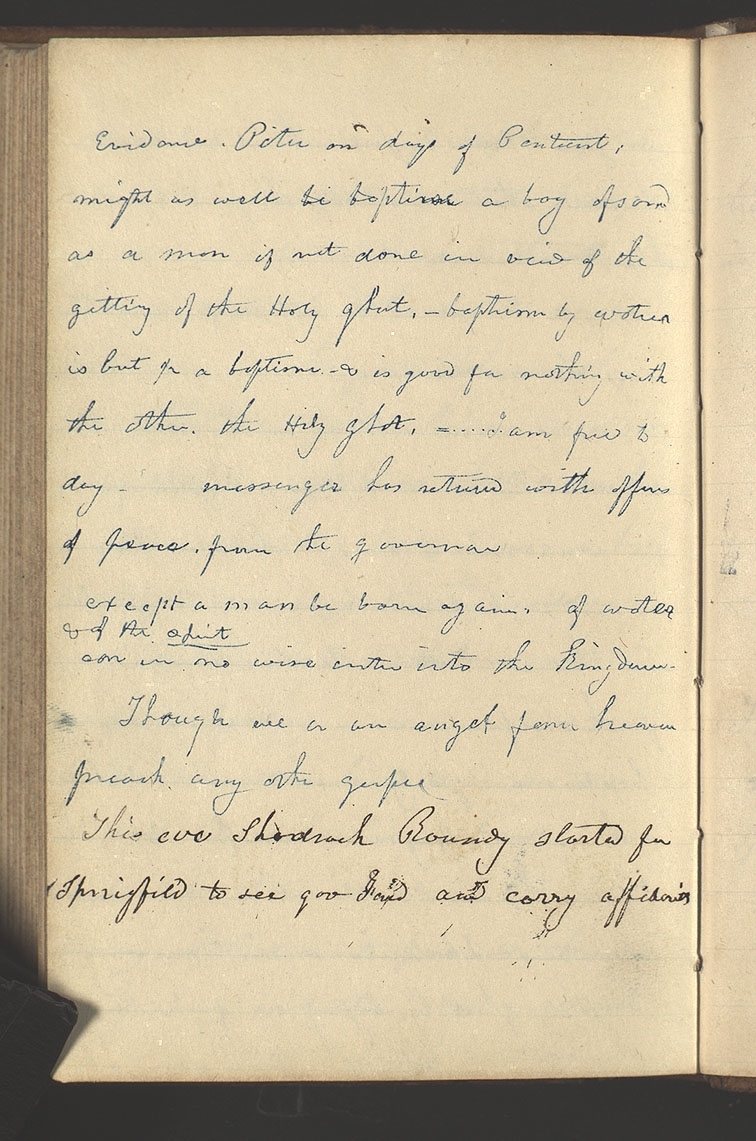 Evidence. Peter on days of Pentecost,
might as well be baptize a bag of sand
as a man if not done in view of the
getting of the Holy ghost. – baptism by water
is but ½ a baptism – & is good for nothing with
the other. the Holy ghost. = ...... I am free to
day – massenger has returned with offers
of peace. from the governor
except a man be born again. of water
& of the spirit
can in no wise enter into the Kingdom –
Though we or an angel from heaven
preach any other gospel
This eve Shadrach Roundy started for
Springfield to see gov Ford and carry affidavits